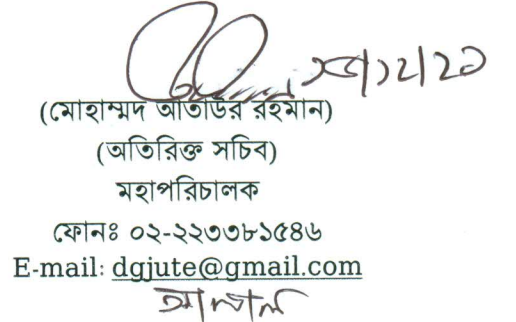 (মোহাম্মদ আতাউর রহমান)
(অতিরিক্ত সচিব)
মহাপরিচালক
ফোনঃ ০২-২২৩৩৮১৫৪৬
E-mail: dgjute@gmail.com